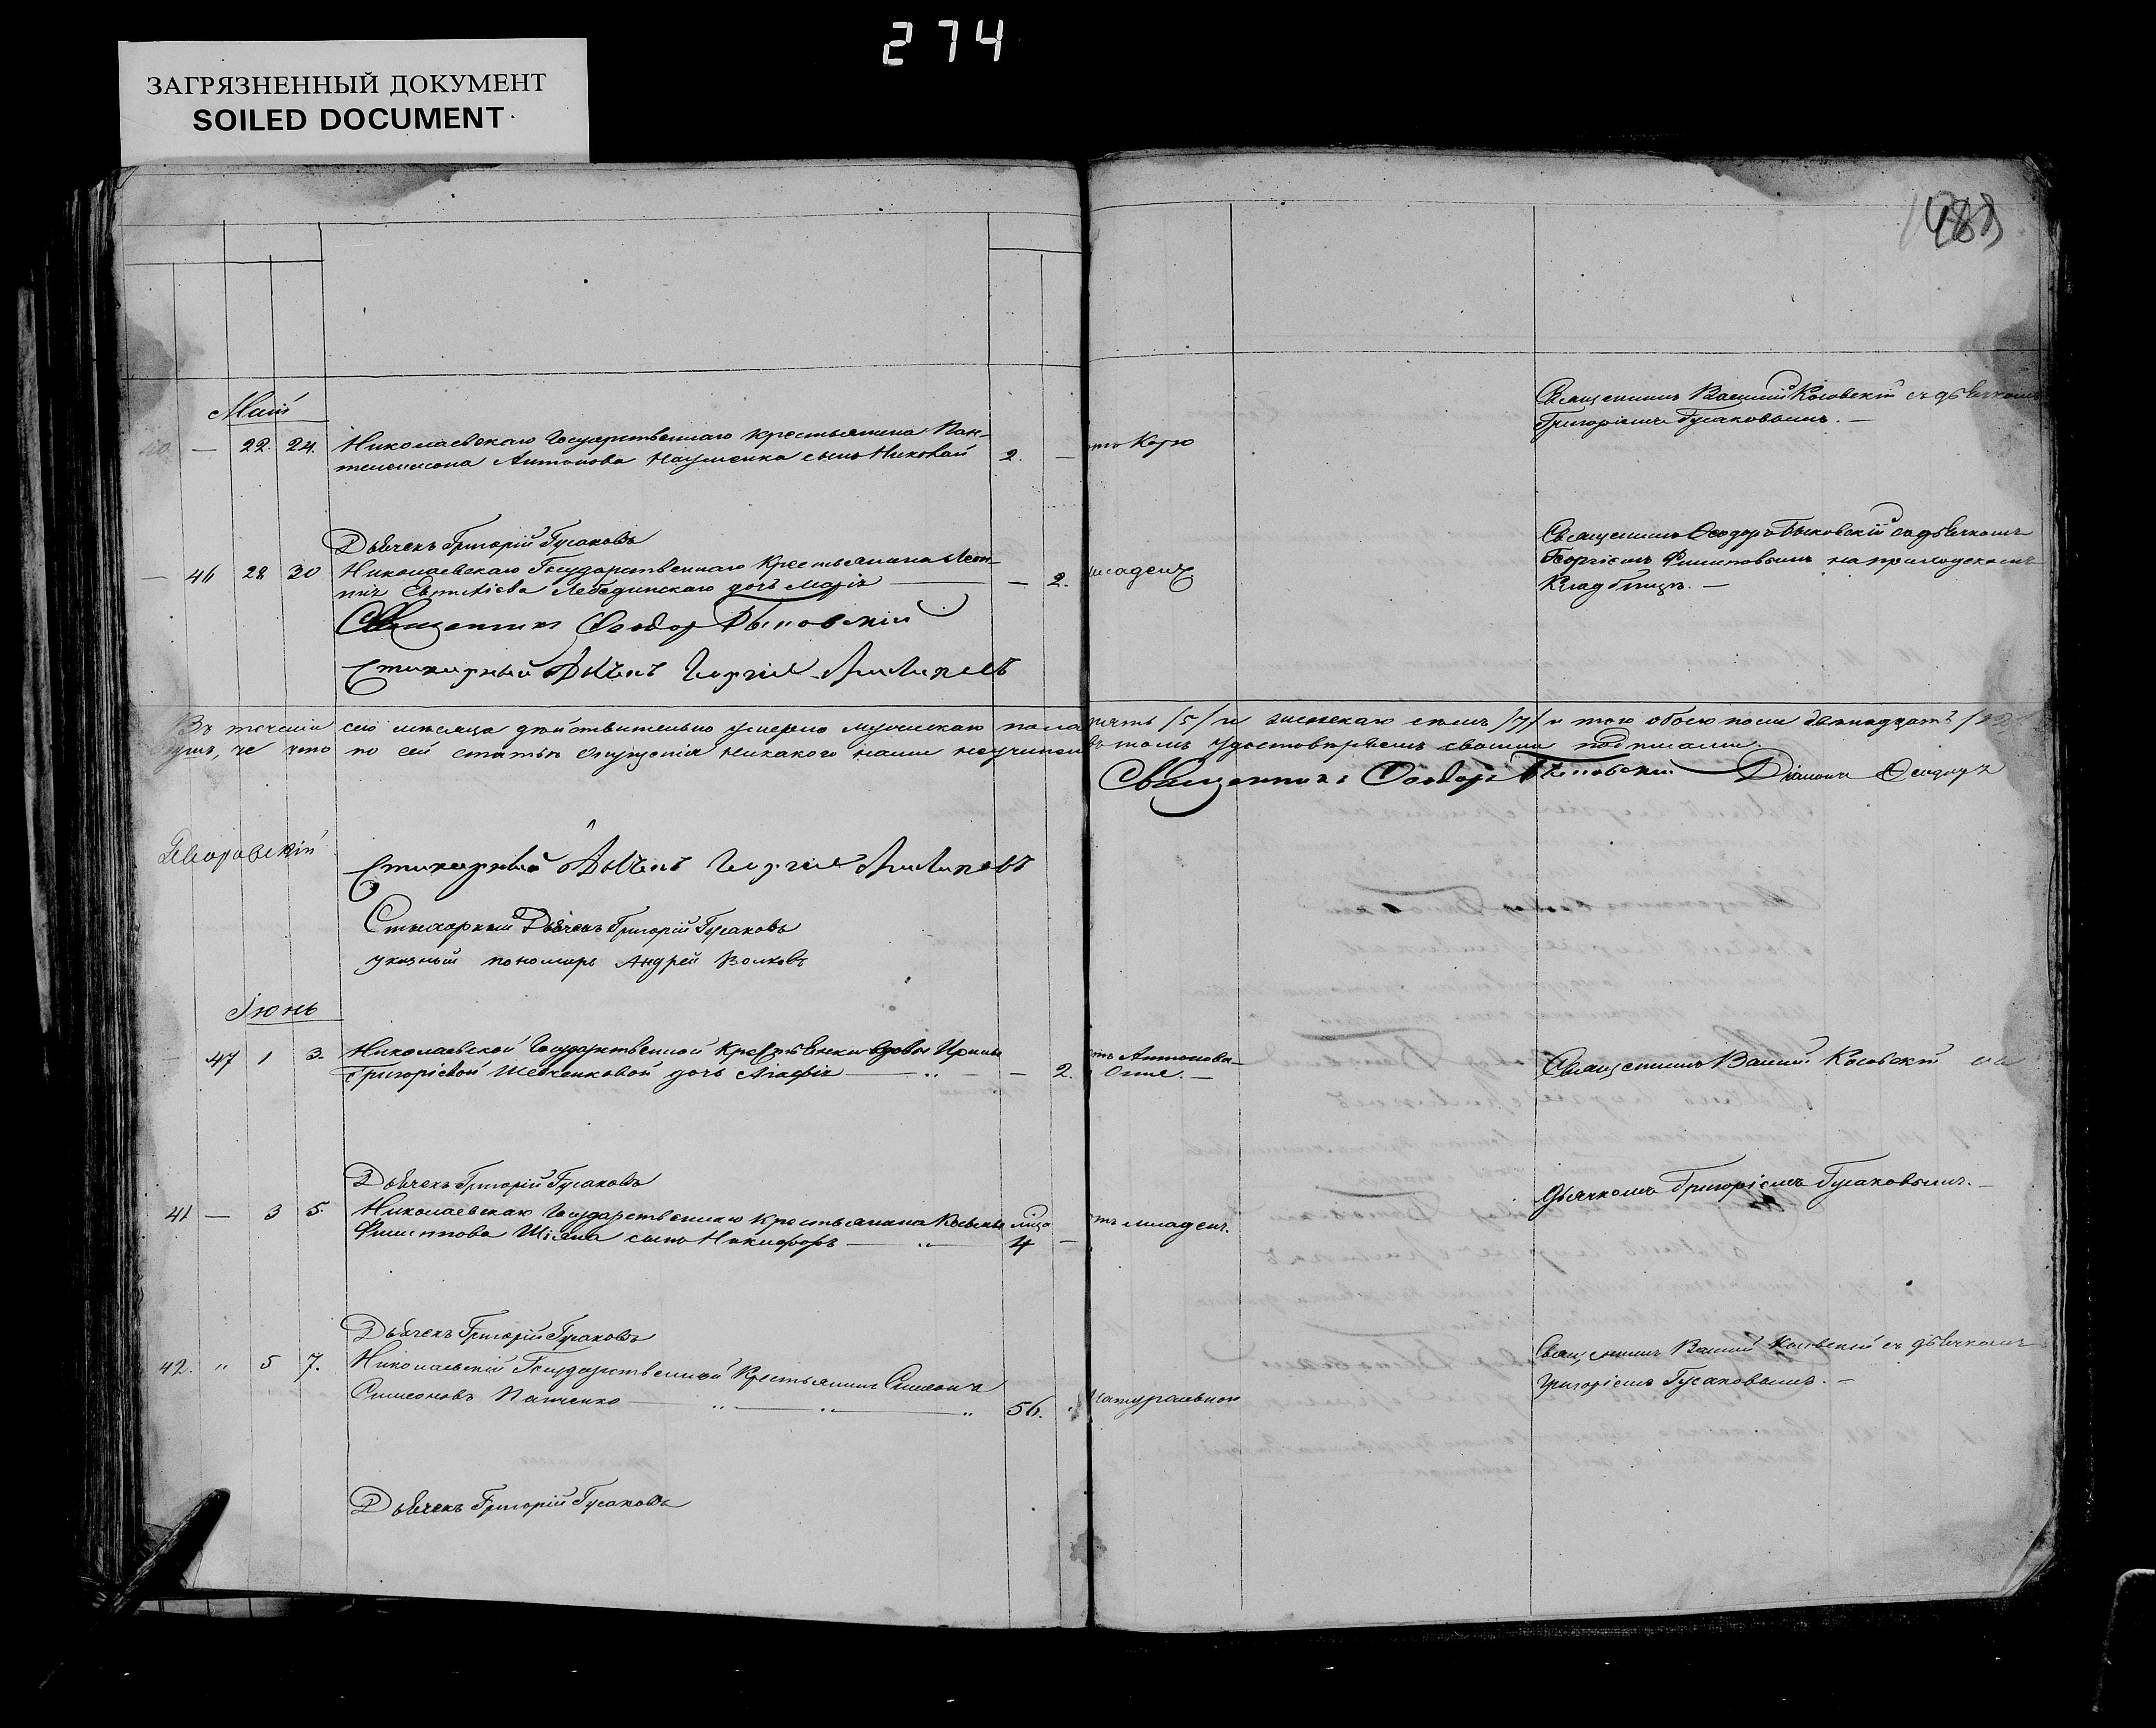 274
ЗАГРЯЗНЕННЫЙ ДОКУМЕНТ
SOILED DOCUMENT
Май
40. — 22. 24. Николаевскаго Государственнаго крестьянина Пан-
телеимона Антонова Науменка сынъ Николай 2. — отъ Корю
Священникъ Василий Косовскій съ дьячкомъ
Григоріемъ Гусаковымъ. —
Дьячекъ Григорій Гусаковъ
— 46 28 30 Николаевскаго Государственнаго Крестьянина Леон-
тія Лебединскаго дочь Марія — 2. младенч
Священникъ Ѳеодоръ съ дьячкомъ
Георгіемъ Филиповымъ на приходскомъ
Кладбищѣ. —
Священникъ Ѳеодоръ
Стихарный Дьячекъ Георгій Филиповъ
Въ теченіи сего мѣсяца дѣйствительно умерло мужескаго пола пять /5/ и женскаго семь /7/ и того обоего пола двенадцать /12/
душъ, въ чемъ по сей статьѣ опущенія никакого нами неучинено въ томъ удостовѣряемъ своими подписами.
Священникъ Ѳеодоръ Діаконъ Ѳеодоръ
Яворовскій
Стихарный Дьячекъ Георгій Филиповъ
Стихарный Дьячекъ Григорій Гусаковъ
указный пономарь Андрей Волковъ
Іюнь
— 47 1 3. Николаевской Государственной Крестьянки вдовы Ирины
Григоріевой Шевченковой дочь Агафія — 2. отъ Антонова
Огне. —
Священникъ Василій Косовскій съ
Дьячекъ Григорій Гусаковъ
дьячкомъ Григоріемъ Гусаковымъ. —
41 — 3 5. Николаевскаго Государственнаго крестьянина
Филиппова сынъ Никифоръ — 4 — отъ младенч.
Дьячекъ Григорій Гусаковъ
42. " 5 7. Николаевскій Государственный Крестьянинъ Симеонъ
Симеоновъ Панченко — 56. Натуральною
Священникъ Василій Косовскій съ дьячкомъ
Григоріемъ Гусаковымъ. —
Дьячекъ Григорій Гусаковъ